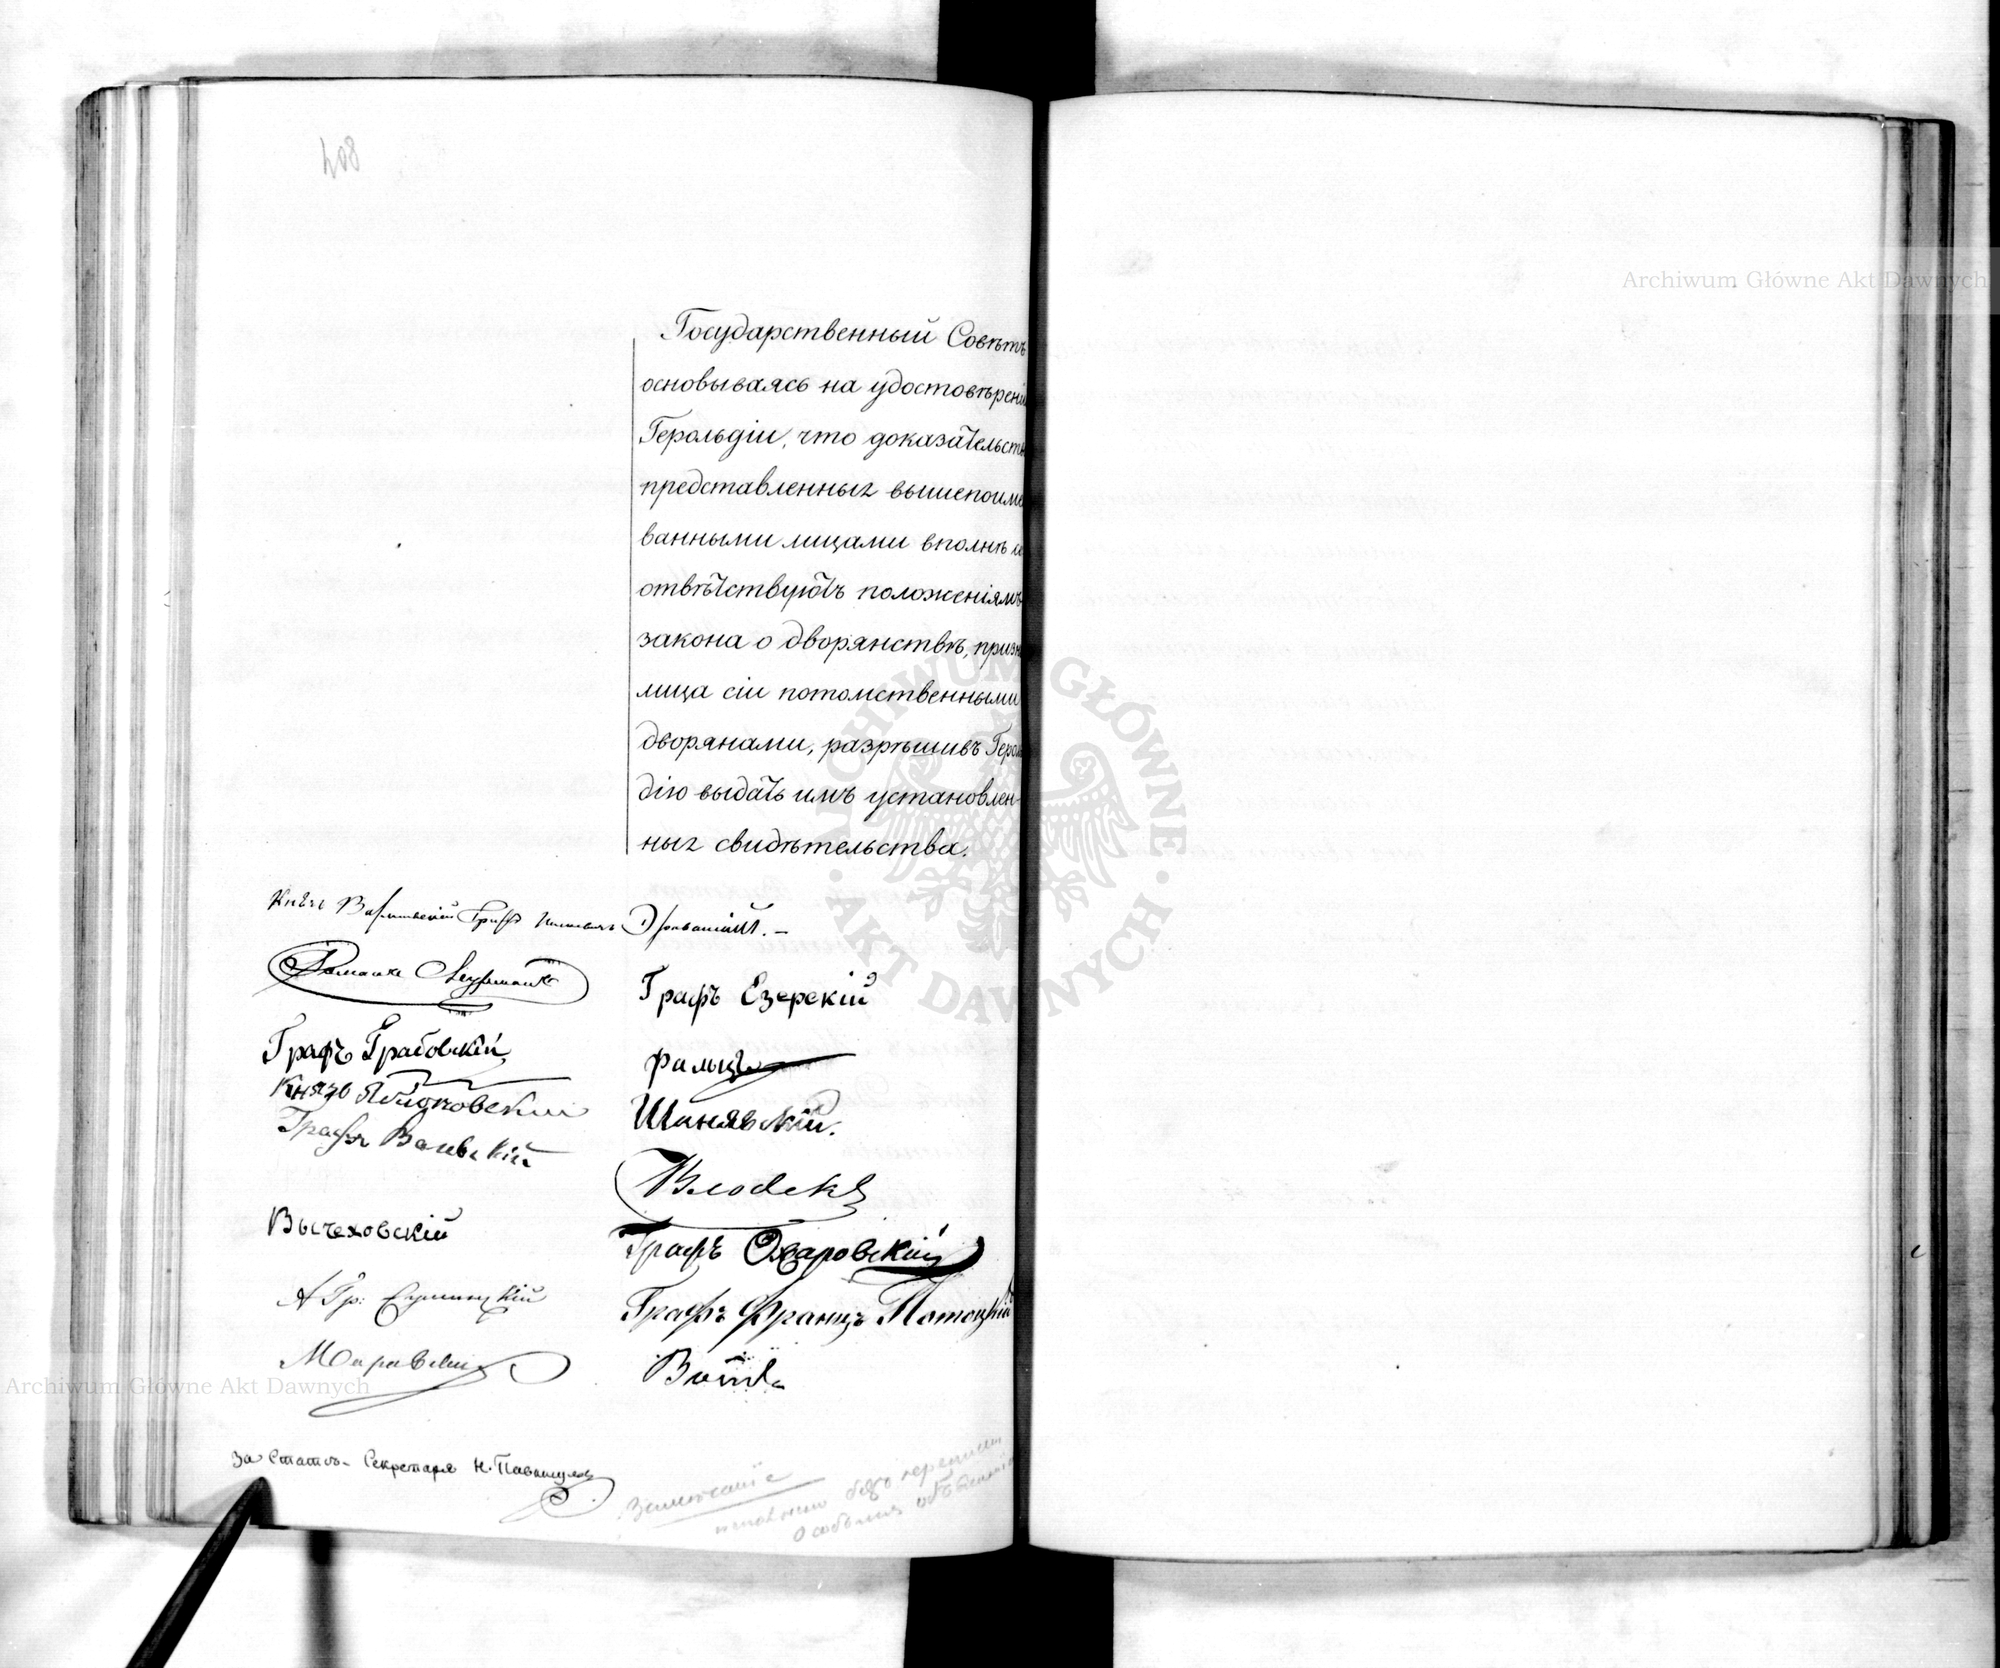 408
Archiwum Główne Akt Dawnych
Государственный Совѣтъ
основываясь на удостовѣрені
Герольдіи, что доказательст
представленныя вышепоиме
ванными лицами вполнѣ со
отвѣтствуютъ положеніямъ
закона о дворянствѣ, призн
лица сіи потомственными
дворянами, разрѣшивъ Герол
дію выдать имъ установлен-
ныя свидѣтельства.
ARCHIWUM GŁÓWNE
· AKT DAWNYCH ·
Князь Графъ
Графъ Езерскій
Графъ Грабовскій
Фальцъ
Князь Яблоновскій
Шанявскій.
Графъ
Влодекъ
Вычеховскій
Графъ Ожаровскій
А Гр:
Графъ Францъ Потоцкій
Archiwum Główne Akt Dawnych
За Статсъ-Секретаря Н. Павлищевъ